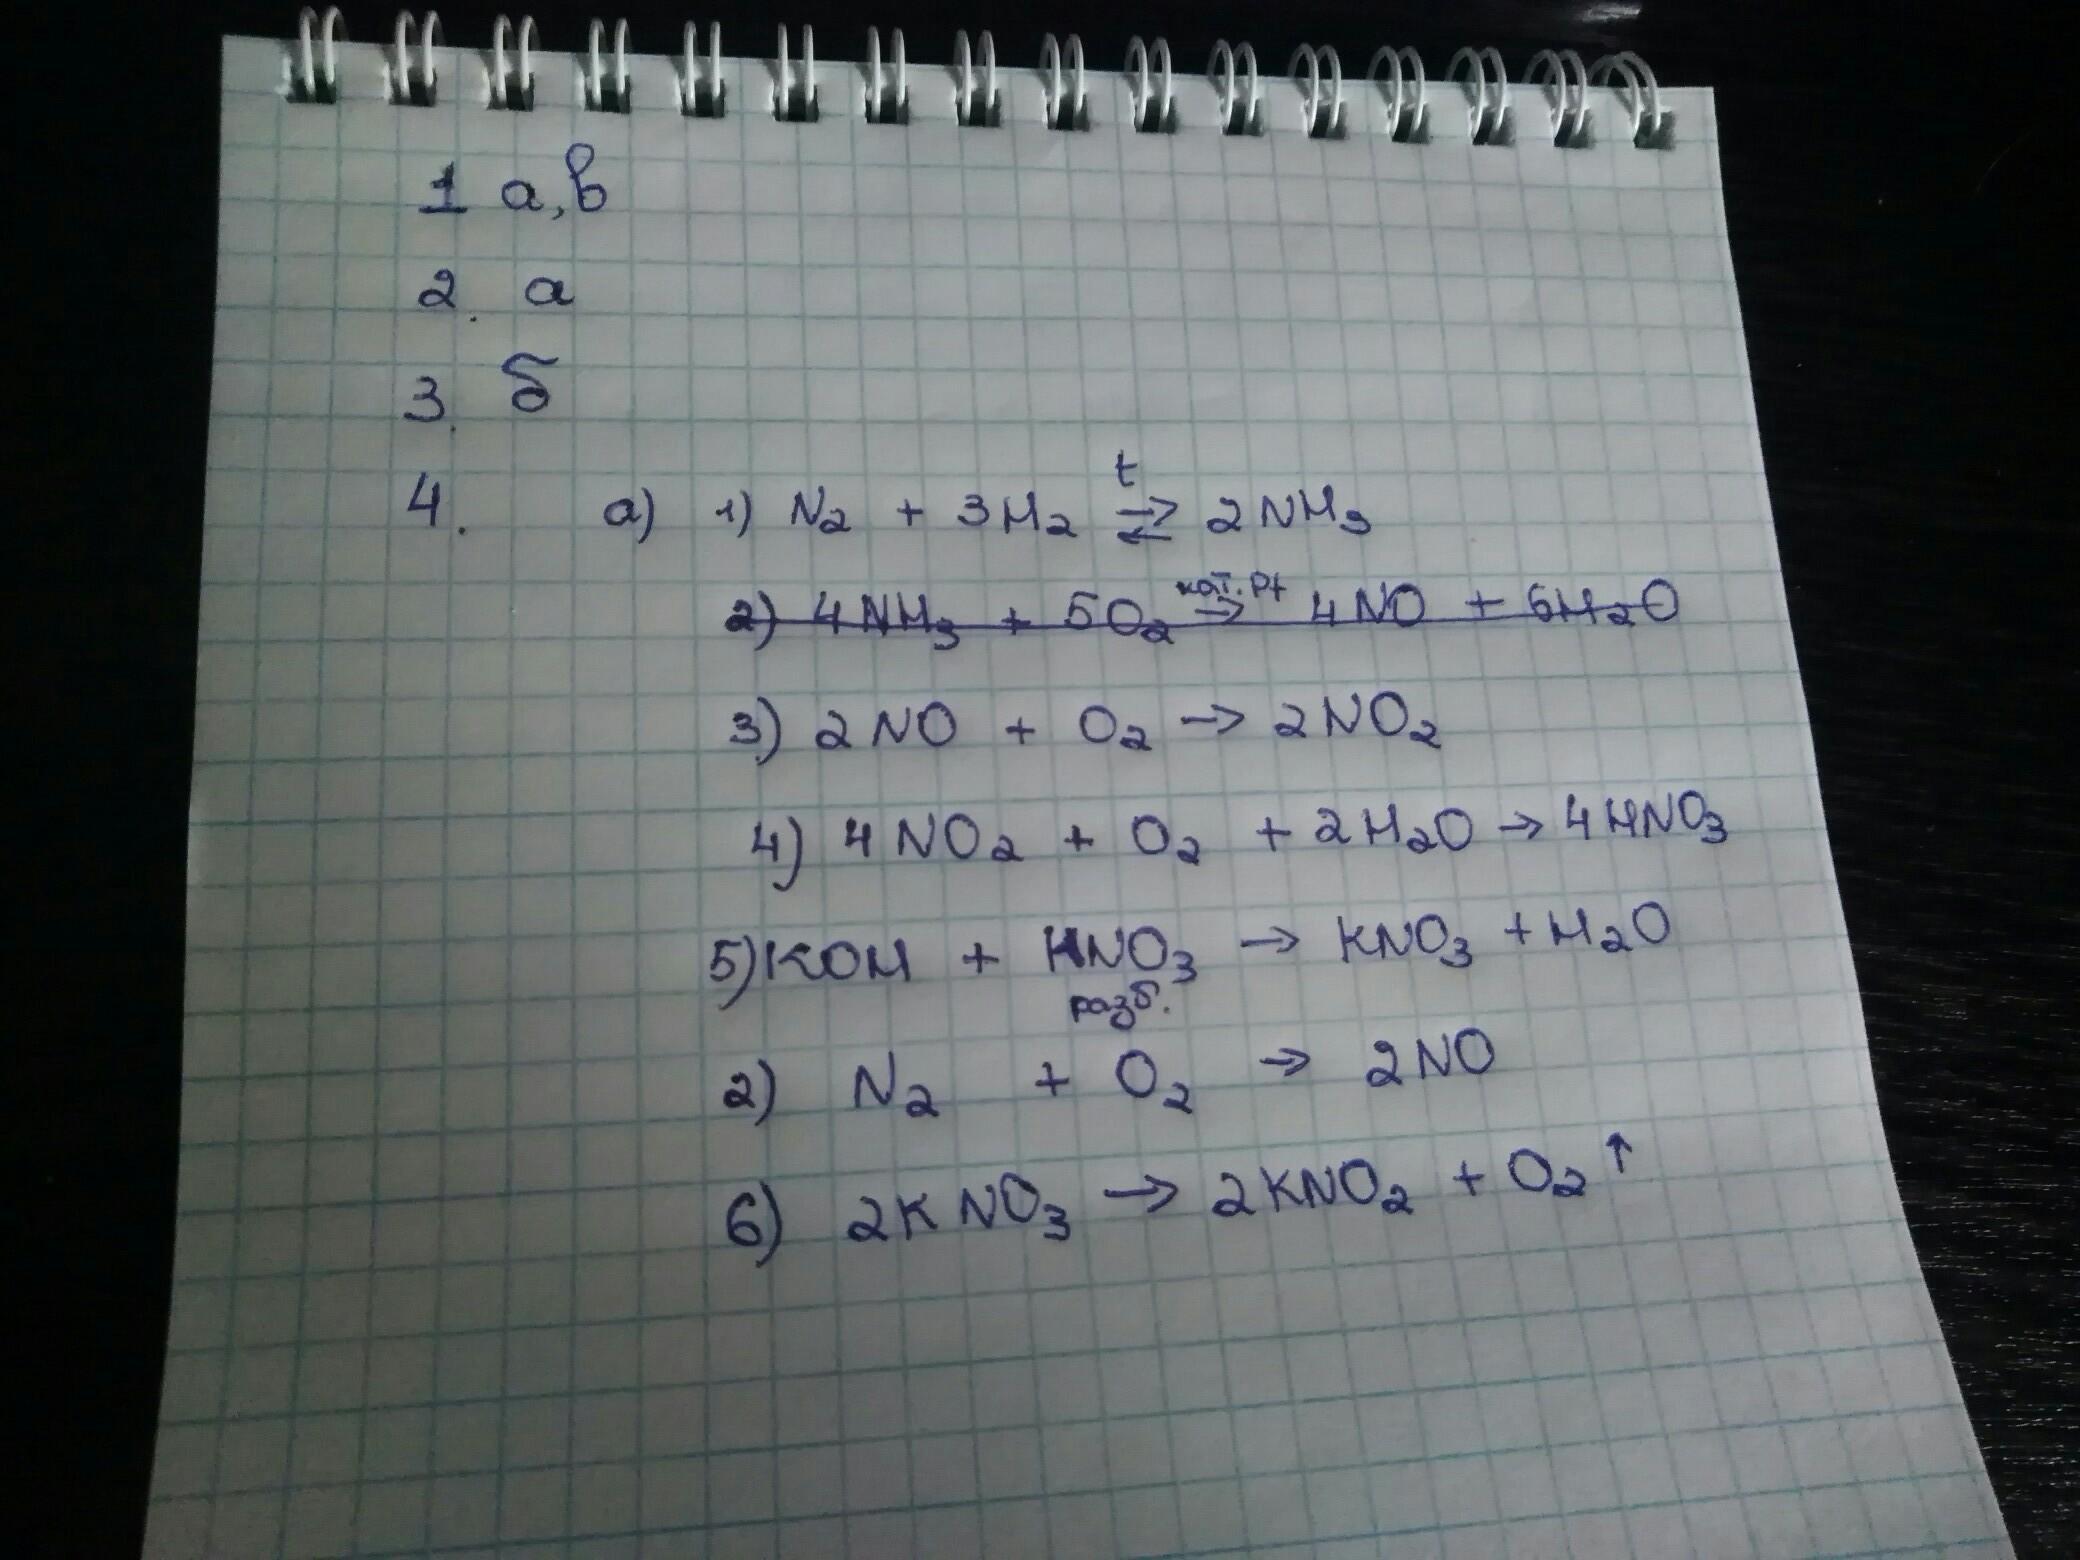 1 а, в
2. а
3. б
4. а) 1) N₂ + 3H₂ ⇄ t 2NH₃
2) 4NH₃ + 5O₂ кат. Pt → 4NO + 6H₂O
3) 2NO + O₂ → 2NO₂
4) 4NO₂ + O₂ + 2H₂O → 4HNO₃
5) KOH + HNO₃ → KNO₃ + H₂O
разб.
2) N₂ + O₂ → 2NO
6) 2KNO₃ → 2KNO₂ + O₂↑